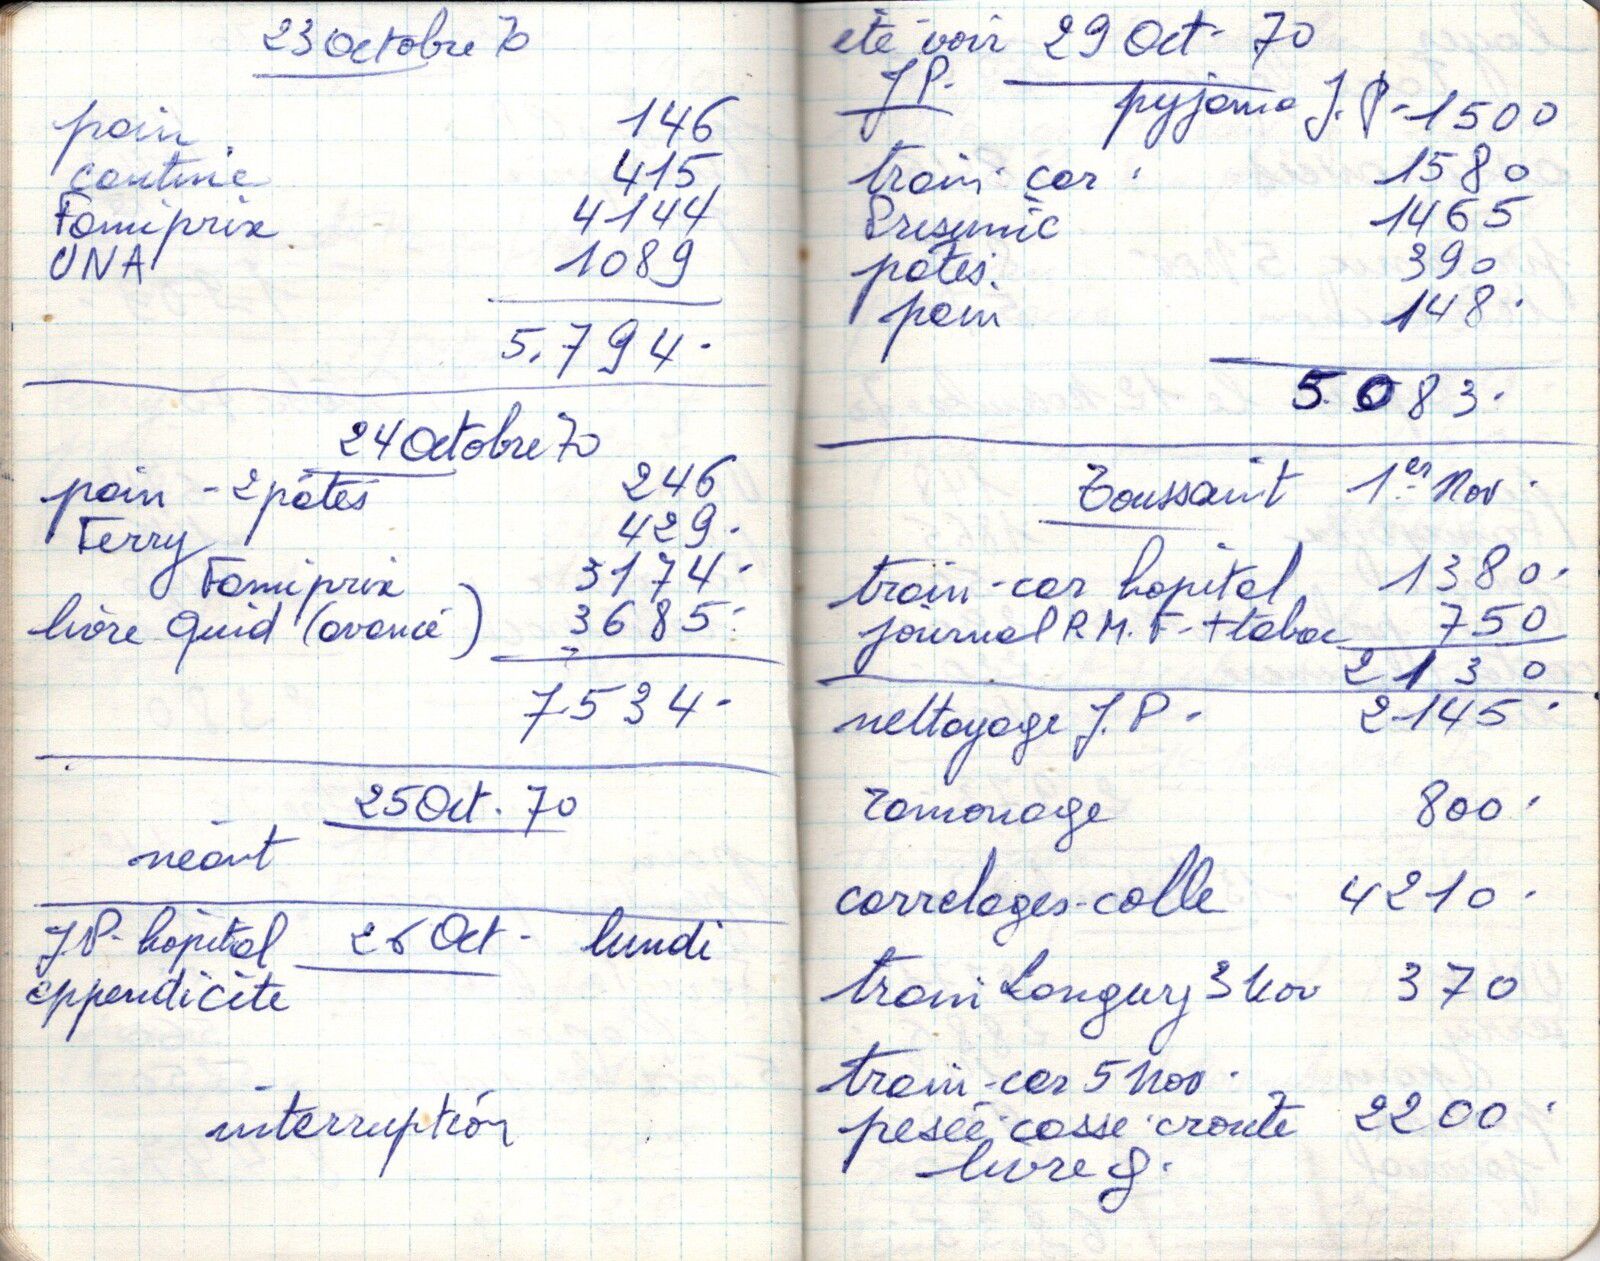 23 Octobre 70
pain 146
cantine 415
Famiprix 4144
UNA 1089
5.794.
24 Octobre 70
pain - 2 pâtes 246
Ferry 429.
Famiprix 3174.
livre Quid (avancé) 3685.
7534.
25 Oct. 70
néant
J.P. hôpital 26 Oct - lundi
appendicite
interruption
été voir 29 Oct. 70
J.P.
pyjama J.P - 1500
train - car 1580
Presumic 1465
pâtes. 390
pain 148.
5083.
Toussaint 1er Nov.
train - car hopital 1380.
journal R.M.F. + tabac 750
2130
nettoyage J.P - 2145.
ramonage 800.
carrelages - colle 4210.
train Longwy 3 Nov 370
train - car 5 Nov.
pesée casse croute 2200.
livre g.